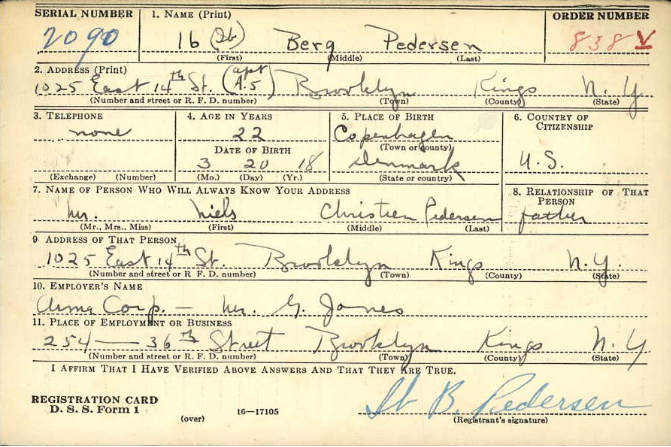 SERIAL NUMBER 1. NAME (Print) ORDER NUMBER
2090 Ib (Ib) Berg Pedersen 838 V
(First) (Middle) (Last)
2. ADDRESS (Print)
1025 East 14th St. (apt A.5) Brooklyn Kings N.Y
(Number and street or R. F. D. number) (Town) (County) (State)
3. TELEPHONE 4. AGE IN YEARS 5. PLACE OF BIRTH 6. COUNTRY OF CITIZENSHIP
none 22 Copenhagen
DATE OF BIRTH (Town or county)
3 20 18 Denmark U.S.
(Exchange) (Number) (Mo.) (Day) (Yr.) (State or country)
7. NAME OF PERSON WHO WILL ALWAYS KNOW YOUR ADDRESS 8. RELATIONSHIP OF THAT PERSON
Mr. Niels Christien Pedersen father
(Mr., Mrs., Miss) (First) (Middle) (Last)
9. ADDRESS OF THAT PERSON
1025 East 14th St. Brooklyn Kings N.Y.
(Number and street or R. F. D. number) (Town) (County) (State)
10. EMPLOYER'S NAME
Arma Corp. — Mr. G. Jones
11. PLACE OF EMPLOYMENT OR BUSINESS
254 — 36th Street Brooklyn Kings N.Y
(Number and street or R. F. D. number) (Town) (County) (State)
I AFFIRM THAT I HAVE VERIFIED ABOVE ANSWERS AND THAT THEY ARE TRUE.
REGISTRATION CARD
D. S. S. Form 1 16—17105 Ib B. Pedersen
(over) (Registrant's signature)